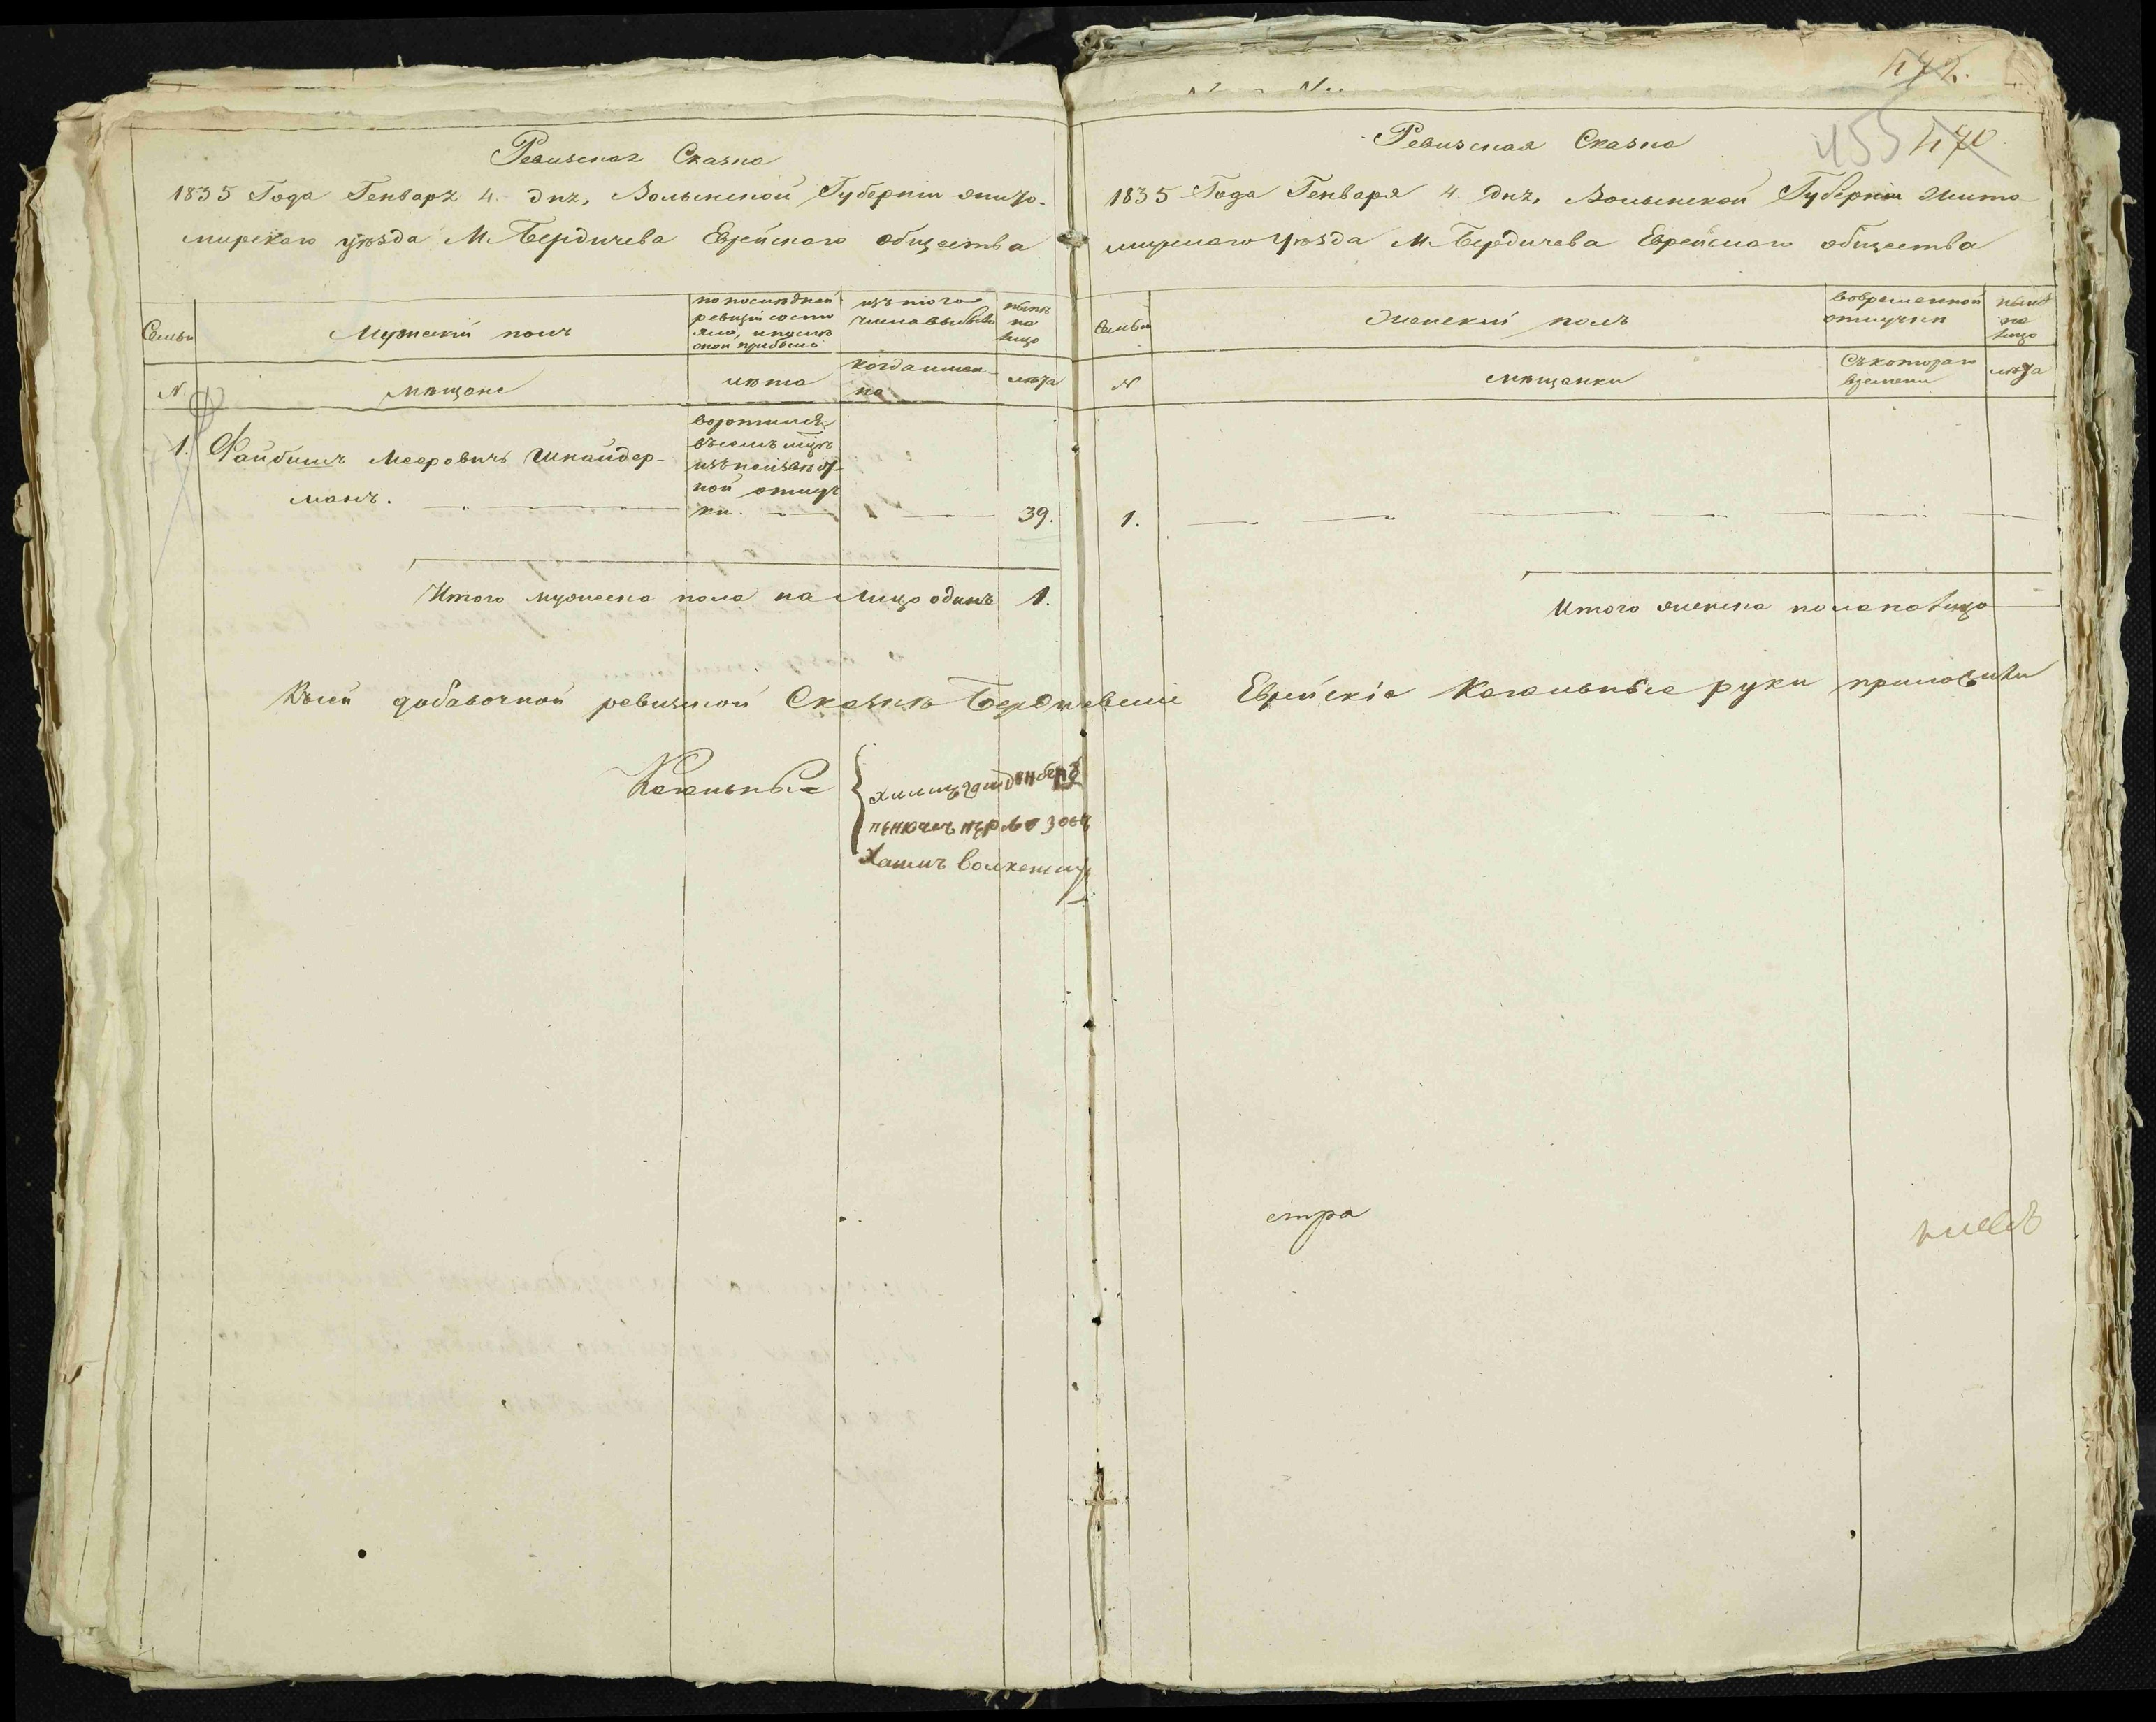 Ревизская Сказка
1835 Года Генваря 4 дня, Волынской Губерніи жито-
мирскаго уѣзда М. Бердичева Еврейскаго общества
Семьи
Мужескій полъ
по последней
ревизіи состо
яло, и послѣ
оной прибыло
изъ того
числа выбыло
нынѣ
на
лицо
N.
мѣщане
лѣта
когда имен-
но
лѣта
1. Файбишъ Меєровичъ Шнайдер-
манъ.
воротился
въ семъ
изъ
ной отлуч
ки.
39.
Итого мужеска пола на лицо одинъ 1.
470.
455
Ревизская Сказка
1835 Года Генваря 4 дня, Волынской Губерніи Жито
мирскаго Уѣзда М. Бердичева Еврейскаго общества
Семьи
Женскій полъ
во временной
отлучки
нынѣ
на
лицо
N
мѣщанки
Съ котораго
времени
лѣта
1.
Итого женска пола на лицо
Къ сей добавочной ревизской Сказкѣ Бердичевскіе Еврейскіе Кагальные руки приложили
Кагальные
Хаимъ
стра